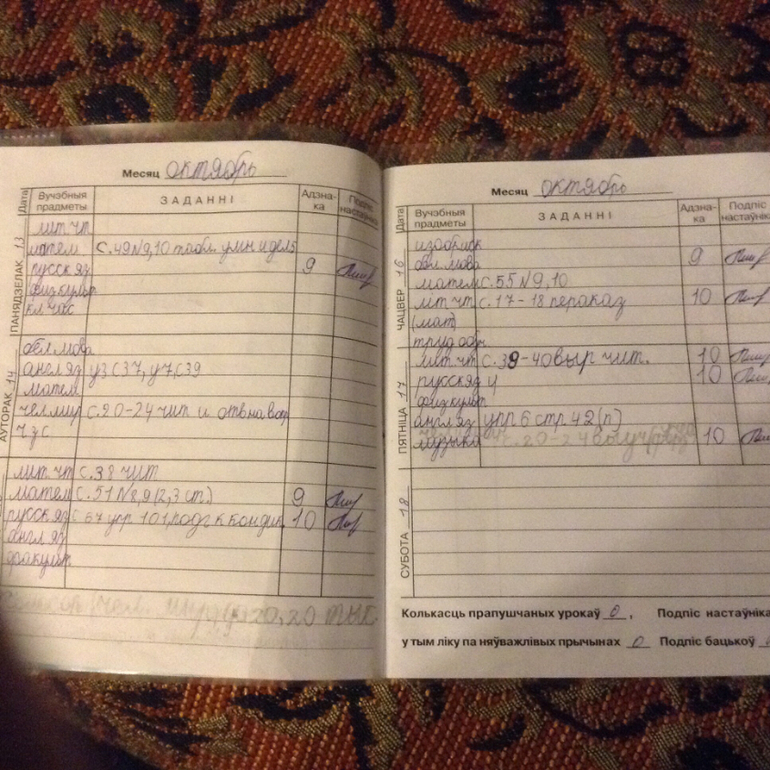 Месяц октябрь
Дата Вучэбныя прадметы ЗАДАННІ Адзнака Подпіс настаўніка
ПАНЯДЗЕЛАК 13
лит чт
матем с. 49 №9, 10 табл. умн и дел 5
русск яз 9
физкульт
кл час
АЎТОРАК 14
бел мова
англ яз у3 с37, у7, с39
матем
чел мир с. 20-24 чит и отв на вор
ч з с
лит чт с. 38 чит
матем с. 51 №8, 9 (2, 3 ст.) 9
русск яз с 67 упр 101, подг к кондик 10
англ яз
факульт
чел. 20, 20
Месяц октябрь
Дата Вучэбныя прадметы ЗАДАННІ Адзнака Подпіс настаўніка
ЧАЦВЕР 16
изобр иск
бел мова 9
матем с. 55 №9, 10
лит чт с. 17-18 пераказ 10
(мат)
труд обуч
ПЯТНІЦА 17
лит чт с. 39-40 выр чит. 10
русск яз у 10
физкульт
англ яз упр 6 стр 42 (п)
музыка с. 20-24 10
СУБОТА 18
Колькасць прапушчаных урокаў 0, Подпіс настаўніка
у тым ліку па няўважлівых прычынах 0 Подпіс бацькоў